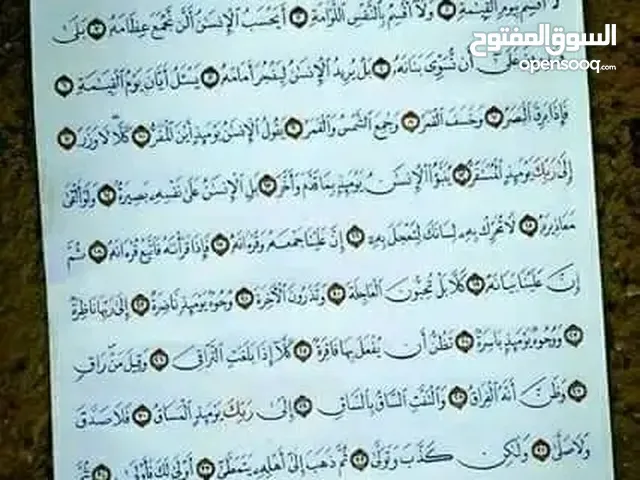 لا أقسم بيوم القيمة ۱ ولا أقسم بالنفس اللوامة ۲ أيحسب الإنسن ألن نجمع عظامه ۳ بلى
على أن نسوى بنانه ٤ بل يريد الإنسن ليفجر أمامه ٥ يسئل أيان يوم القيمة ٦
فإذا برق البصر ٧ وخسف القمر ٨ وجمع الشمس والقمر ٩ يقول الإنسن يومئذ أين المفر ۱۰ كلا لا وزر ۱۱
إلى ربك يومئذ المستقر ۱۲ ينبؤا الإنسن يومئذ بما قدم وأخر ۱۳ بل الإنسن على نفسه بصيرة ۱٤ ولو ألقى
معاذيره ۱٥ لا تحرك به لسانك لتعجل به ۱٦ إن علينا جمعه وقرءانه ۱٧ فإذا قرأنه فاتبع قرءانه ۱٨ ثم
إن علينا بيانه ۱٩ كلا بل تحبون العاجلة ۲۰ وتذرون الآخرة ۲۱ وجوه يومئذ ناضرة ۲۲ إلى ربها ناظرة
۲۳ ووجوه يومئذ باسرة ۲٤ تظن أن يفعل بها فاقرة ۲٥ كلا إذا بلغت التراقى ۲٦ وقيل من راق
۲٧ وظن أنه الفراق ۲٨ والتفت الساق بالساق ۲٩ إلى ربك يومئذ المساق ۳۰ فلا صدق
ولا صلى ۳۱ ولكن كذب وتولى ۳۲ ثم ذهب إلى أهله يتمطى ۳۳ أولى لك فأولى ۳٤ ثم
السوق المفتوح
opensooq.com